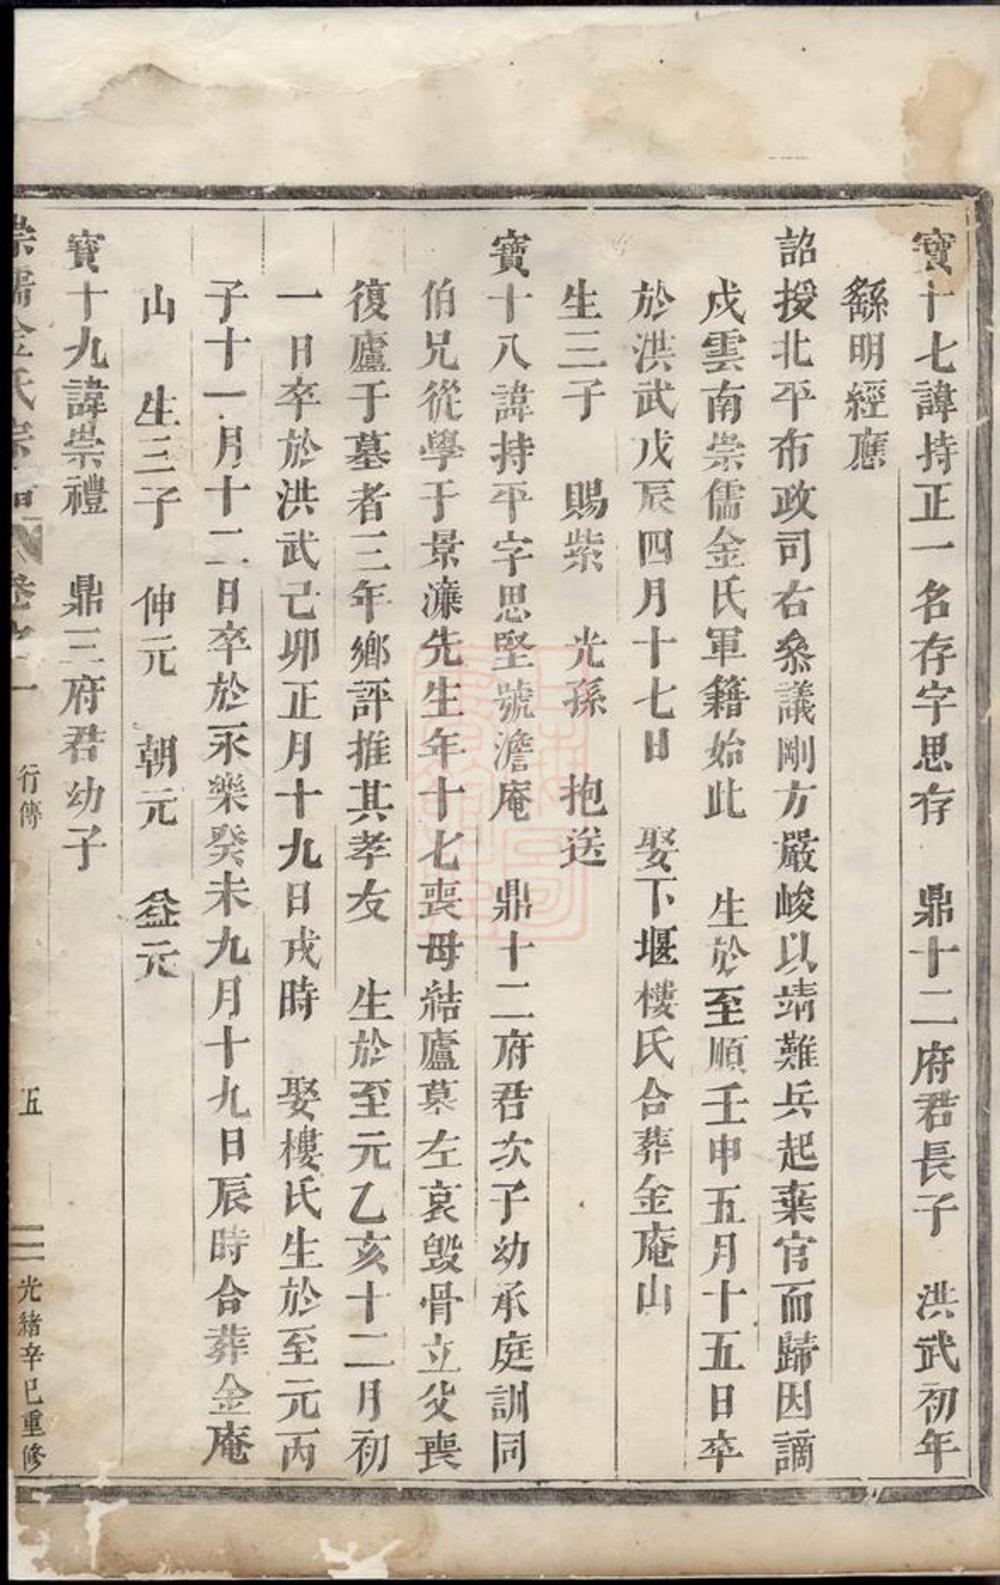 寶十七諱持正一名存字思存　鼎十二府君長子　洪武初年
繇明經應
詔授北平布政司右叅議剛方嚴峻以靖難兵起棄官而歸因謫
戍雲南崇儒金氏軍籍始此　生於至順壬申五月十五日卒
於洪武戊辰四月十七日　娶下堰樓氏合葬金庵山
生三子　賜紫　光孫　抱送
寶十八諱持平字思堅號澹庵　鼎十二府君次子幼承庭訓同
伯兄從學于景濂先生年十七喪母結廬墓左哀毀骨立父喪
復廬于墓者三年鄉評推其孝友　生於至元乙亥十二月初
一日卒於洪武己卯正月十九日戌時　娶樓氏生於至元丙
子十一月十二日卒於永樂癸未九月十九日辰時合葬金庵
山　生三子　仲元　朝元　益元
寶十九諱崇禮　鼎三府君幼子
崇儒金氏宗譜　卷之一　行傳　五　光緒辛巳重修